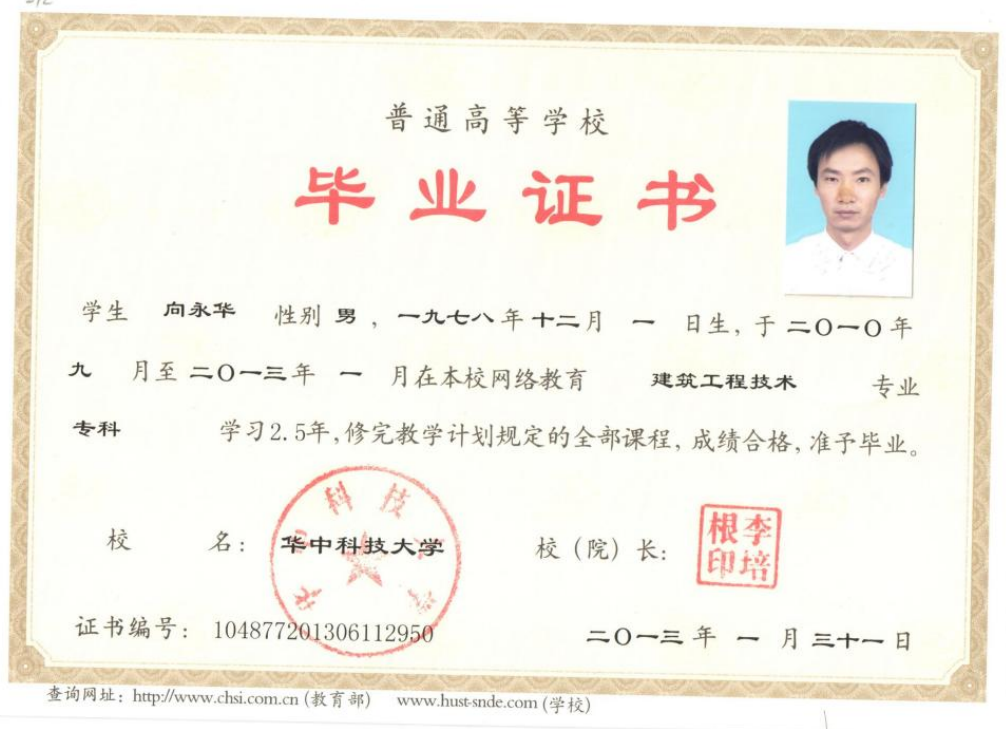 普通高等学校
毕业证书
学生 向永华 性别 男 , 一九七八 年 十二 月 一 日生, 于 二〇一〇 年
九 月至 二〇一三 年 一 月在本校网络教育 建筑工程技术 专业
专科 学习2.5年, 修完教学计划规定的全部课程, 成绩合格, 准予毕业。
校 名: 华中科技大学 校 (院) 长: 李培根印
华中科技大学
证书编号: 104877201306112950 二〇一三 年 一 月 三十一 日
查询网址: http://www.chsi.com.cn (教育部) www.hust-snde.com (学校)